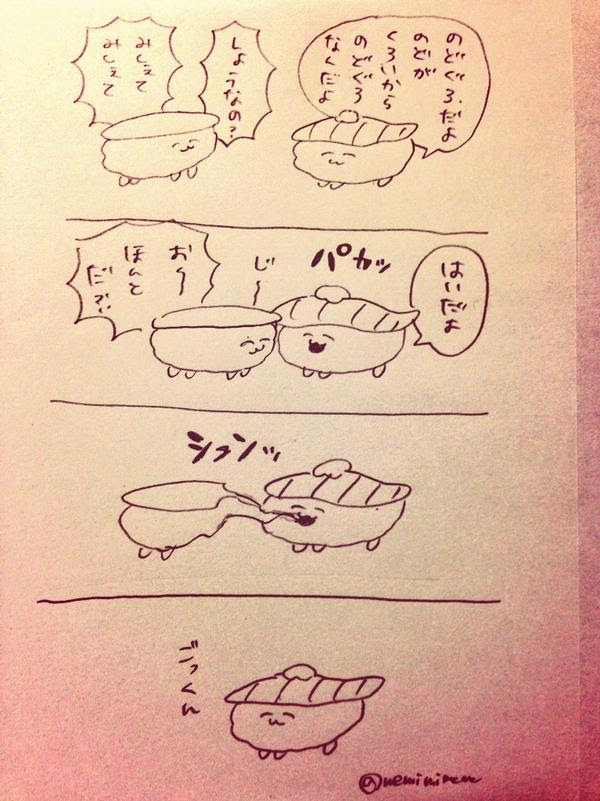 のどぐろだよ
のどが
くろいから
のどぐろ
なんだよ
しょうなの?
みしぇて
みしぇて
はいだよ
パカッ
じ〜
お〜
ほんと
シュンッ
ごっくん